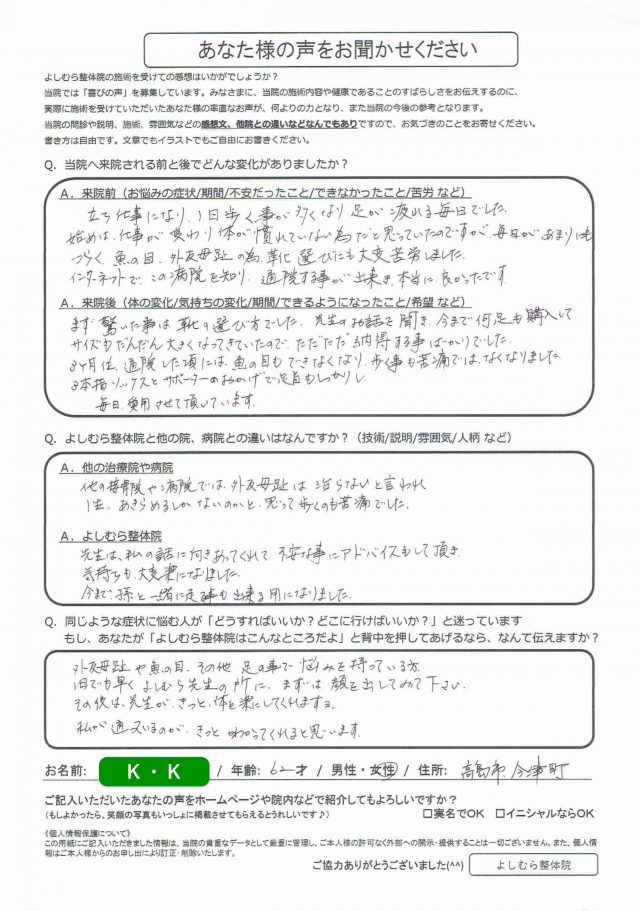 あなた様の声をお聞かせください
よしむら整体院の施術を受けての感想はいかがでしょうか?
当院では「喜びの声」を募集しています。みなさまに、当院の施術内容や健康であることのすばらしさをお伝えするのに、
実際に施術を受けていただいたあなた様の率直なお声が、何よりの力となり、また当院の今後の参考となります。
当院の問診や説明、施術、雰囲気などの感想文、他院との違いなどなんでもありですので、お気づきのことをお寄せください。
書き方は自由です。文章でもイラストでもご自由にお書きください。
Q. 当院へ来院される前と後でどんな変化がありましたか?
A. 来院前(お悩みの症状/期間/不安だったこと/できなかったこと/苦労 など)
立ち仕事になり、1日歩く事が多くなり足が疲れる毎日でした。
始めは、仕事が変わり体が慣れていない為だと思っていたのですが、毎日があまりにも
つらく、魚の目、外反母趾の為、靴選びにも大変苦労しました。
インターネットで、この病院を知り、通院する事が出来き、本当に良かったです
A. 来院後(体の変化/気持ちの変化/期間/できるようになったこと/希望 など)
まず驚いた事は靴の選び方でした。先生のお話を聞き、今まで何足も購入して
サイズもだんだん大きくなってきていたので、ただただ納得する事ばかりでした。
3ヶ月位、通院した頃には、魚の目もできなくなり、歩く事も苦痛ではなくなりました。
5本指ソックスとサポーターのおかげで足首もしっかりし、
毎日、愛用させて頂いています。
Q. よしむら整体院と他の院、病院との違いはなんですか?(技術/説明/雰囲気/人柄 など)
A. 他の治療院や病院
他の接骨院や病院では、外反母趾は治らないと言われ
1生、あきらめるしかないのかと、思って歩くのも苦痛でした。
A. よしむら整体院
先生は、私の話に向きあってくれて、不安な事にアドバイスもして頂き
気持ちも、大変楽になりました。
今まで、孫と一緒に走る事も出来る用になりました。
Q. 同じような症状に悩む人が「どうすればいいか?どこに行けばいいか?」と迷っています
もし、あなたが「よしむら整体院はこんなところだよ」と背中を押してあげるなら、なんて伝えますか?
外反母趾や魚の目、その他 足の事で悩みを持っている方
1日でも早く よしむら先生の所に、まずは 顔を出してみて下さい。
その後は、先生が、きっと、体を楽にしてくれますヨ。
私が通っているのが、きっと わかってくれると思います。
お名前: K・K / 年齢: 62才 / 男性・女性 / 住所: 高島市今津町
ご記入いただいたあなたの声をホームページや院内などで紹介してもよろしいですか?
(もしよかったら、笑顔の写真もいっしょに掲載させてもらえるとうれしいです♪) □実名でOK □イニシャルならOK
《個人情報保護について》
この用紙にご記入いただきました情報は、当院の貴重なデータとして厳重に管理し、ご本人様の許可なく外部への開示・提供することは一切ございません。また、個人情
報はご本人様からのお申し出により訂正・削除いたします。
ご協力ありがとうございました(^^) よしむら整体院